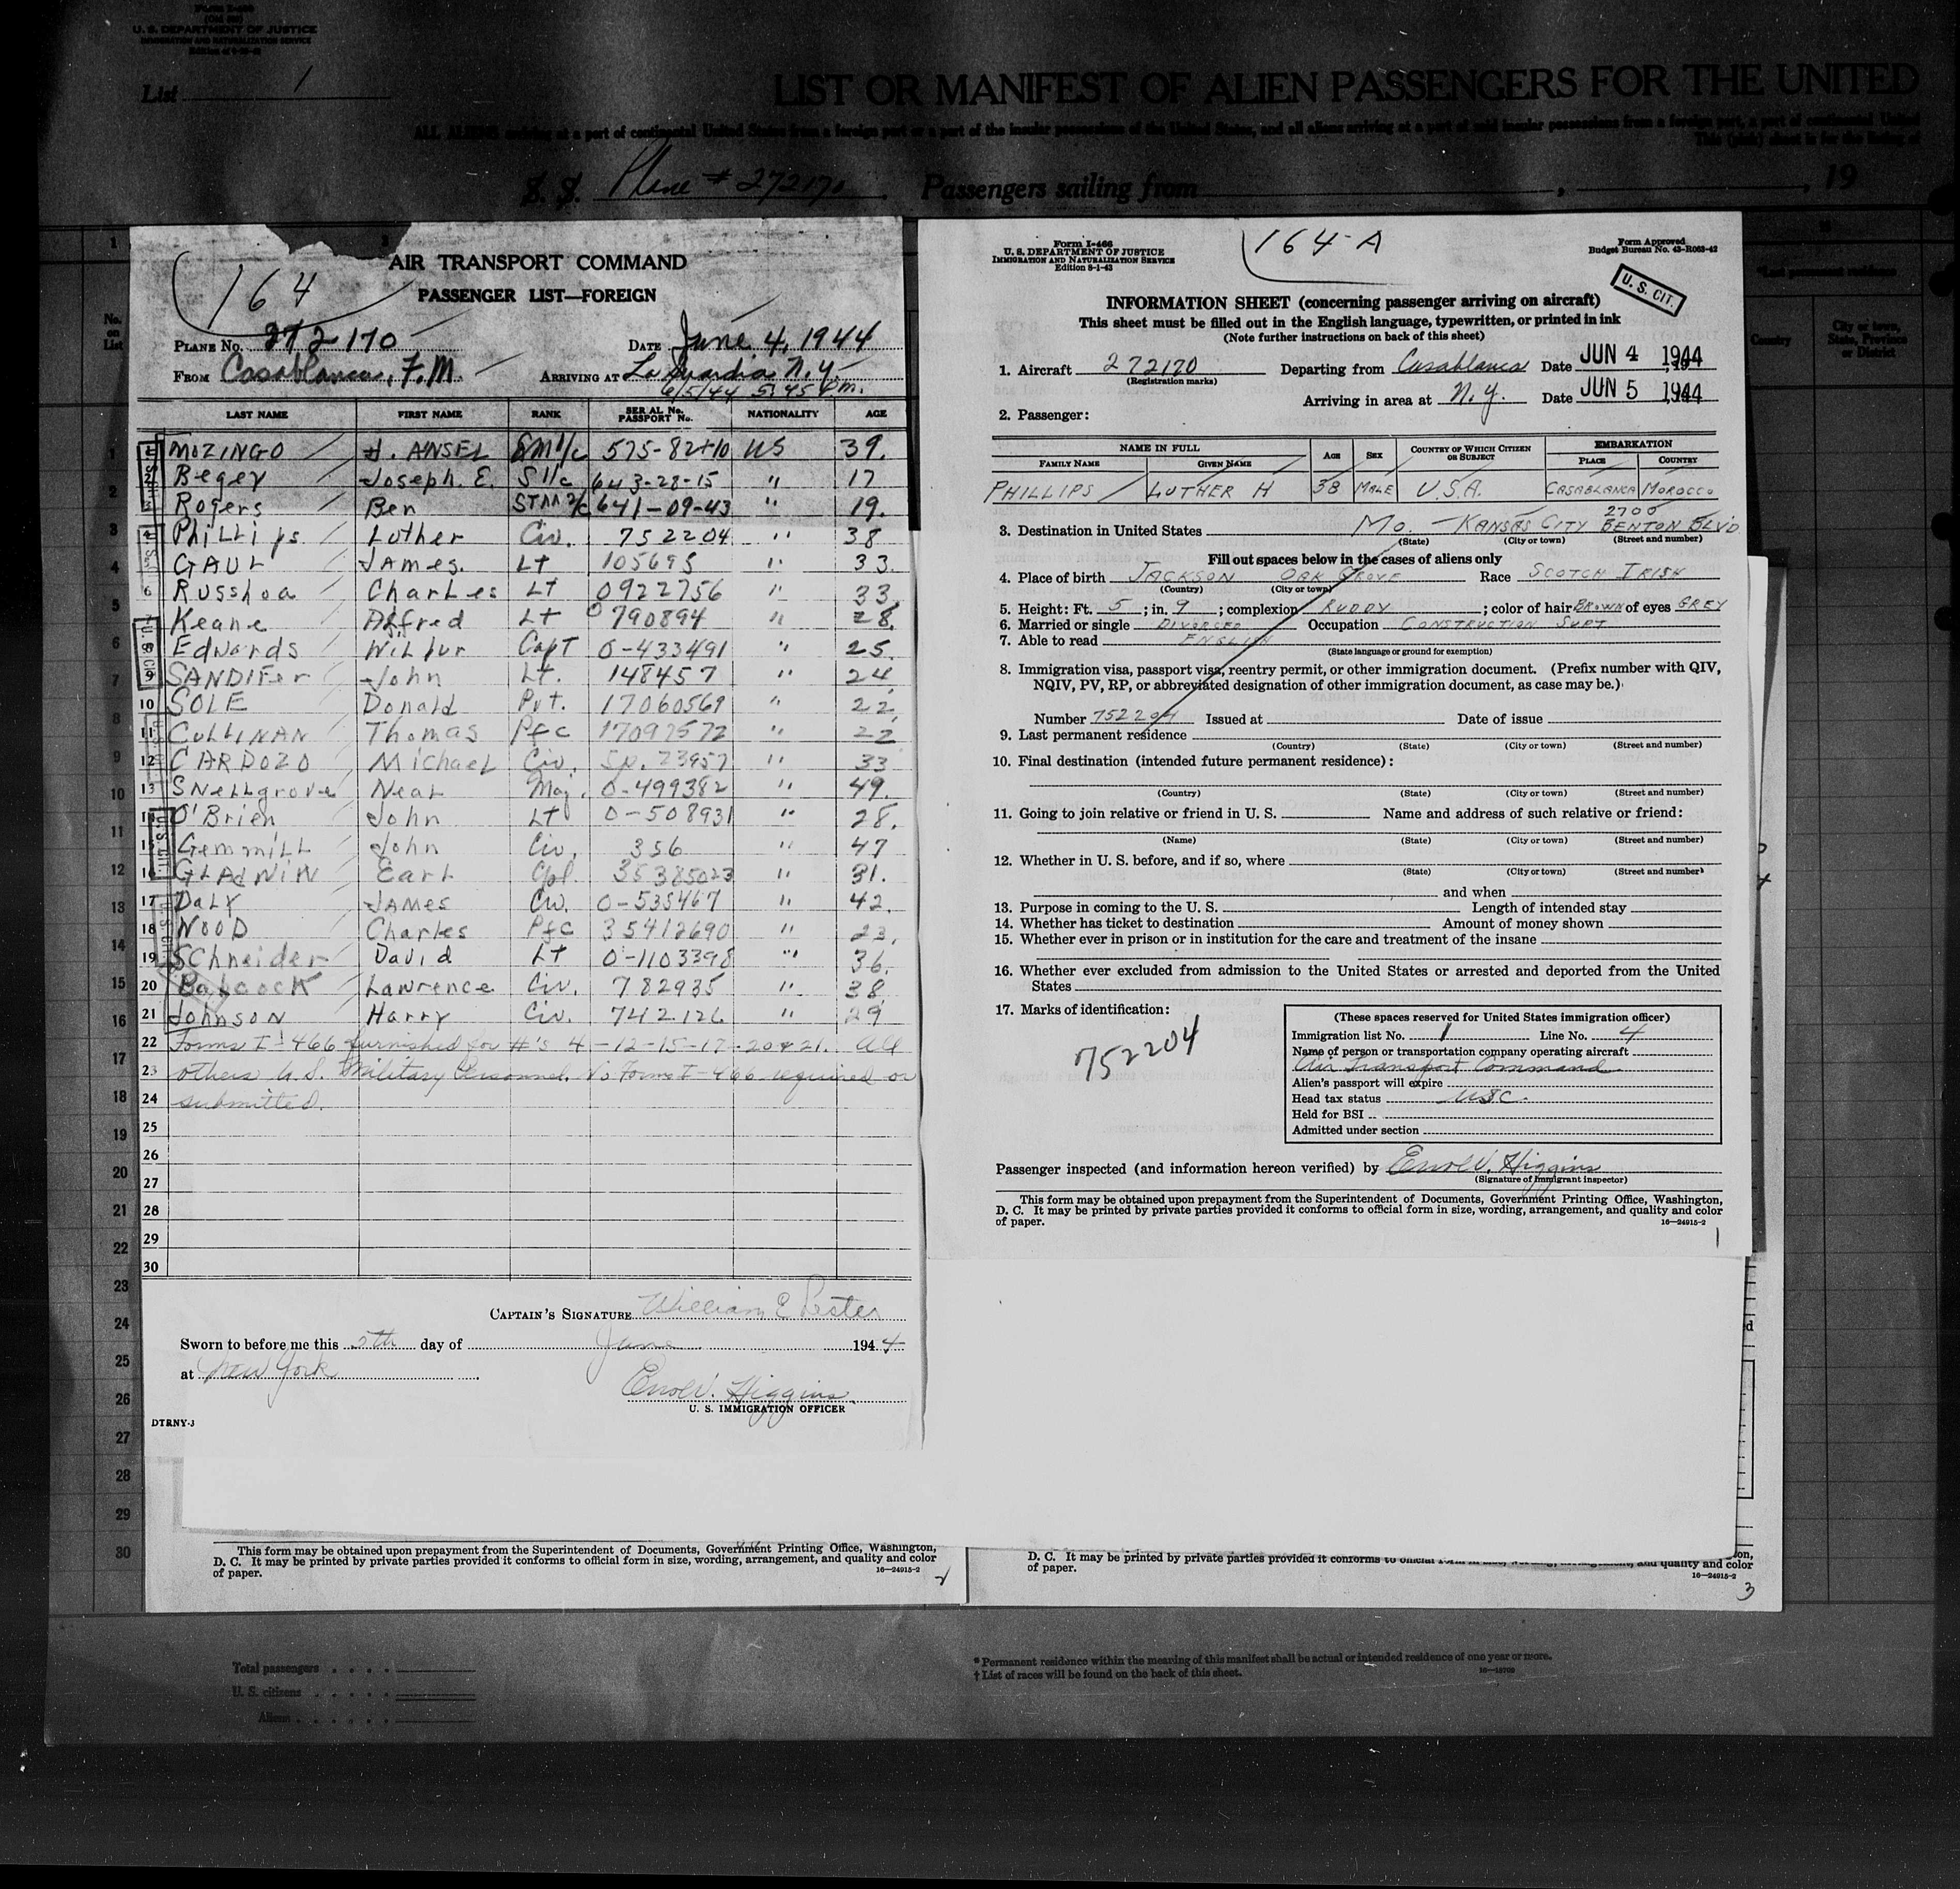 U. S. DEPARTMENT OF JUSTICE
IMMIGRATION AND NATURALIZATION SERVICE
List 1
LIST OR MANIFEST OF ALIEN PASSENGERS FOR THE UNITED
ALL ALIENS arriving at a port of continental United States from a foreign port or a port of the insular possessions of the United States, and all aliens arriving at a port of said insular possessions from a foreign port, a port of continental United
This (pink) sheet is for the listing of
S. S. Plane # 272170. Passengers sailing from , , 19
164
AIR TRANSPORT COMMAND
PASSENGER LIST—FOREIGN
PLANE NO. 272170 DATE June 4, 1944
FROM Casablanca, F.M. ARRIVING AT La Guardia N.Y.
6/5/44 5:45 P.m.
LAST NAME FIRST NAME RANK SERIAL No. PASSPORT No. NATIONALITY AGE
MOZINGO J. ANSEL SM1/c 575-82-10 US 39.
Beger Joseph. E. S1/c 643-28-15 " 17
Rogers Ben STM2/c 641-09-43 " 19.
PhiLLips Luther Civ. 752204 " 38
GAUL JAMes. Lt 105695 " 33.
Russhoa CharLes Lt 0922756 " 33
Keane Alfred Lt 0790894 " 28.
Edwards Wilbur Capt 0-433491 " 25.
SANDIFer John Lt. 148457 " 24
10 SOLE Donald Pvt. 17060569 " 22
11 CuLLINAN Thomas Pfc 17097572 " 22
12 CARDOZO MichaeL Civ. Sp. 23957 " 33
13 SNeLLgrove NeaL Maj. 0-499382 " 49.
14 O'Brien John Lt 0-508931 " 28.
15 GemmiLL John Civ. 356 " 47
16 GLAdWIN EarL Cpl. 35385023 " 31.
17 DaLy JAMes Civ. 0-535467 " 42.
18 WOOD Charles Pfc 35412690 " 23.
19 SChneider David Lt 0-1103398 " 36.
20 Babcock Lawrence Civ. 782935 " 38
21 Johnson Harry Civ. 742126 " 29
22 Forms I-466 furnished for #'s 4-12-15-17-20 & 21. All
23 others U.S. Military Personnel. No Forms I-466 required or
24 submitted.
25
26
27
28
29
30
CAPTAIN'S SIGNATURE William E Lester
Sworn to before me this 5th day of June 1944
at New York
Errol V. Higgins
U. S. IMMIGRATION OFFICER
DTRNY-J
This form may be obtained upon prepayment from the Superintendent of Documents, Government Printing Office, Washington,
D. C. It may be printed by private parties provided it conforms to official form in size, wording, arrangement, and quality and color
of paper.
16—24915-2
2
Form I-466
U. S. DEPARTMENT OF JUSTICE
IMMIGRATION AND NATURALIZATION SERVICE
Edition 8-1-43
164-A
Form Approved
Budget Bureau No. 43-R063-42
U. S. CIT.
INFORMATION SHEET (concerning passenger arriving on aircraft)
This sheet must be filled out in the English language, typewritten, or printed in ink
(Note further instructions on back of this sheet)
1. Aircraft 272170 Departing from Casablanca Date JUN 4 1944
(Registration marks)
Arriving in area at N.Y. Date JUN 5 1944
2. Passenger:
NAME IN FULL AGE SEX COUNTRY OF WHICH CITIZEN OR SUBJECT EMBARKATION
FAMILY NAME GIVEN NAME PLACE COUNTRY
PHILLIPS LUTHER H 38 MALE U.S.A. CASABLANCA MOROCCO
2700
3. Destination in United States Mo. KANSAS CITY BENTON BLVD
(State) (City or town) (Street and number)
Fill out spaces below in the cases of aliens only
4. Place of birth JACKSON OAK GROVE Race SCOTCH IRISH
(Country) (City or town)
5. Height: Ft. 5; in. 9; complexion RUDDY; color of hair BROWN of eyes GREY
6. Married or single DIVORCED Occupation CONSTRUCTION SUPT
7. Able to read ENGLISH
(State language or ground for exemption)
8. Immigration visa, passport visa, reentry permit, or other immigration document. (Prefix number with QIV,
NQIV, PV, RP, or abbreviated designation of other immigration document, as case may be.)
Number 752204 Issued at Date of issue
9. Last permanent residence
(Country) (State) (City or town) (Street and number)
10. Final destination (intended future permanent residence):
(Country) (State) (City or town) (Street and number)
11. Going to join relative or friend in U. S. Name and address of such relative or friend:
(Name) (State) (City or town) (Street and number)
12. Whether in U. S. before, and if so, where
(State) (City or town) (Street and number)
and when
13. Purpose in coming to the U. S. Length of intended stay
14. Whether has ticket to destination Amount of money shown
15. Whether ever in prison or in institution for the care and treatment of the insane
16. Whether ever excluded from admission to the United States or arrested and deported from the United
States
17. Marks of identification:
752204
(These spaces reserved for United States immigration officer)
Immigration list No. 1 Line No. 4
Name of person or transportation company operating aircraft
Air Transport Command
Alien's passport will expire
Head tax status USC.
Held for BSI
Admitted under section
Passenger inspected (and information hereon verified) by Errol V. Higgins
(Signature of immigrant inspector)
This form may be obtained upon prepayment from the Superintendent of Documents, Government Printing Office, Washington,
D. C. It may be printed by private parties provided it conforms to official form in size, wording, arrangement, and quality and color
of paper.
16—24915-2
1
D. C. It may be printed by private parties provided it conforms to official form in size, wording, arrangement, and quality and color
of paper.
16—24915-2
3
Total passengers
U. S. citizens
Aliens
* Permanent residence within the meaning of this manifest shall be actual or intended residence of one year or more.
† List of races will be found on the back of this sheet.